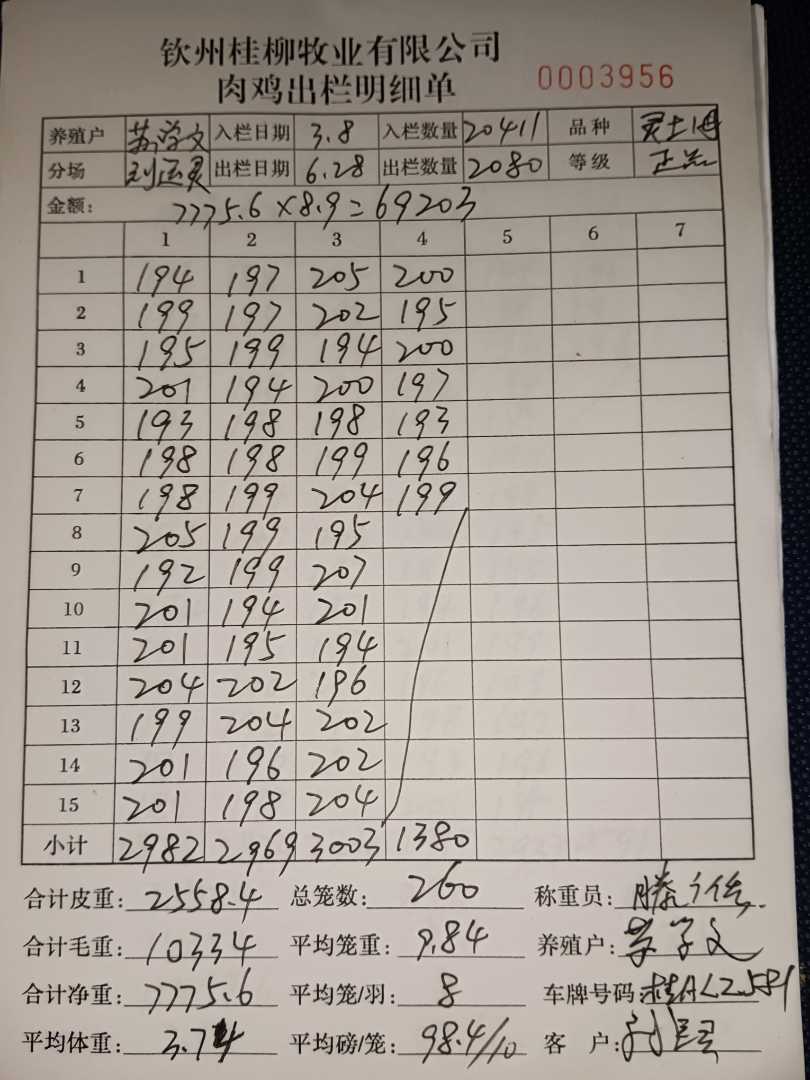 钦州桂柳牧业有限公司
肉鸡出栏明细单 0003956
养殖户 苏学文 入栏日期 3.8 入栏数量 20411 品种 灵土
分场 刘运灵 出栏日期 6.28 出栏数量 2080 等级 正品
金额: 7775.6×8.9=69203
1 2 3 4 5 6 7
1 194 197 205 200
2 199 197 202 195
3 195 199 194 200
4 201 194 200 197
5 193 198 198 193
6 198 198 199 196
7 198 199 204 199
8 205 199 195
9 192 199 207
10 201 194 201
11 201 195 194
12 204 202 196
13 199 204 202
14 201 196 202
15 201 198 204
小计 2982 2969 3003 1380
合计皮重: 2558.4 总笼数: 260 称重员: 滕
合计毛重: 10334 平均笼重: 9.84 养殖户: 苏学文
合计净重: 7775.6 平均笼/羽: 8 车牌号码: 桂ALZ581
平均体重: 3.74 平均磅/笼: 98.4/10 客 户: 刘